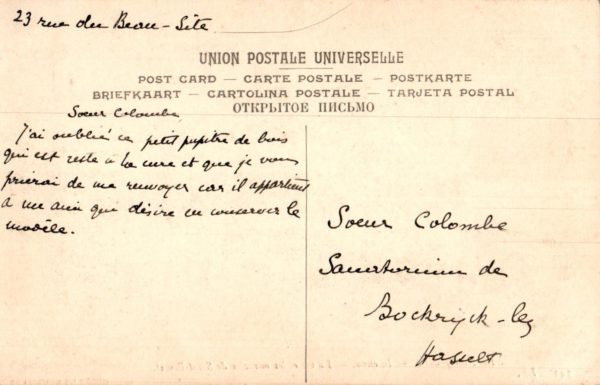 23 rue du Beau-Site
UNION POSTALE UNIVERSELLE
POST CARD — CARTE POSTALE — POSTKARTE
BRIEFKAART — CARTOLINA POSTALE — TARJETA POSTAL
ОТКРЫТОЕ ПИСЬМО
Sœur Colombe,
J'ai oublié ce petit pupitre de bois
qui est resté à la cure et que je vous
prierai de me renvoyer car il appartient
à un ami qui désire en conserver le
modèle.
Soeur Colombe
Sanatorium de
Bockryck-lez
Hasselt